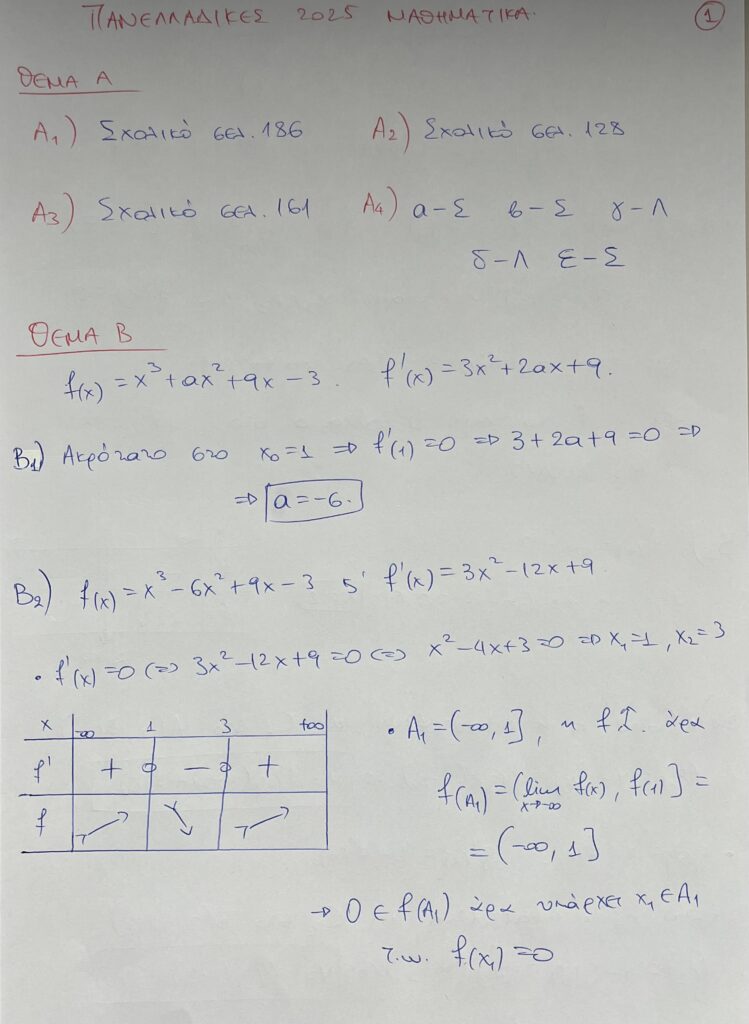 ΠΑΝΕΛΛΑΔΙΚΕΣ 2025 ΜΑΘΗΜΑΤΙΚΑ. 1
ΘΕΜΑ Α
Α₁) Σχολικό σελ. 186 Α₂) Σχολικό σελ. 128
Α₃) Σχολικό σελ. 161 Α₄) α-Σ β-Σ γ-Λ
δ-Λ ε-Σ
ΘΕΜΑ Β
f(x) = x³+αx²+9x-3. f'(x) = 3x²+2αx+9.
Β1) Ακρότατο στο x₀=1 ⇒ f'(1)=0 ⇒ 3+2α+9=0 ⇒
⇒ α=-6.
Β₂) f(x) = x³-6x²+9x-3 ς' f'(x) = 3x²-12x+9
• f'(x)=0 ⇔ 3x²-12x+9=0 ⇔ x²-4x+3=0 ⇒ x₁=1, x₂=3
x -∞ 1 3 +∞
f' + 0 - 0 +
f ↗ ↘ ↗
• Α₁=(-∞,1], η f↑. άρα
f(Α₁)=(lim x→-∞ f(x), f(1)]=
=(-∞,1]
→ 0∈f(Α₁) άρα υπάρχει x₁∈Α₁
τ.ω. f(x₁)=0